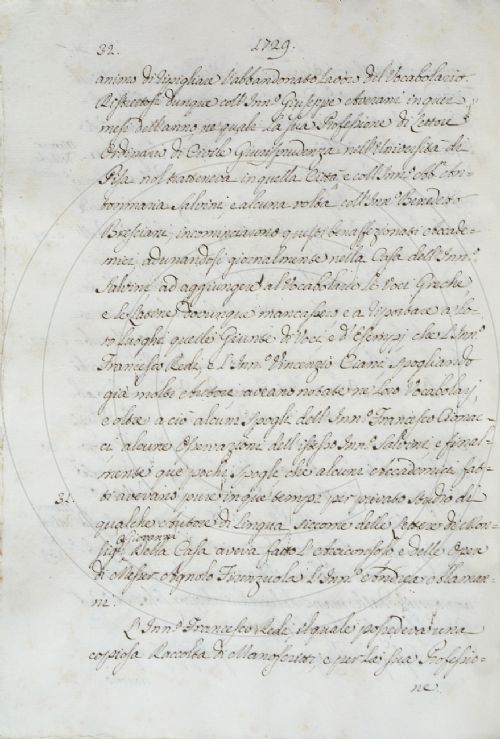 32. 1729.
animo di ripigliare l'abbandonato lavoro del Vocabolario.
Ristrettosi dunque coll'Inn.º Giuseppe Averani in quei
mesi dell'anno ne' quali la sua Professione di Lettore
Ordinario di Civile Giurisprudenza nell'Università di
Pisa nol tratteneva in quella Città, e coll'Inn.º Ab.º An-
tonmaria Salvini, e alcuna volta coll'Inn.º Benedetto
Bresciani, incominciarono questi benaffezionati Accade-
mici adunandosi giornalmente nella Casa dell'Inn.º
Salvini ad aggiungere al Vocabolario le Voci Greche
e le Latine dovunque mancassero e a riportare a' lo-
ro luoghi quelle Giunte di Voci e d'Esempj che l'Inn.º
Francesco Redi, e l'Inn.º Vincenzio Capponi spogliando
già molti Autori, aveano notate ne' loro Vocabolarj,
e oltre a ciò alcuni spogli dell'Inn.º Francesco Cionac-
ci, alcune Osservazioni dell'istesso Inn.º Salvini, e final-
mente que' pochi spogli che alcuni Accademici fat-
31. ti avevano pure in que' tempi per privato studio di
qualche Autore di lingua siccome delle Lettere di Mon-
sig.r Giovanni Della Casa aveva fatto l'Arciconsolo e delle Opere
di Messer Agnolo Firenzuola l'Inn.º Andrea Alaman-
ni.
L'Inn.º Francesco Redi, il quale possedeva una
copiosa Raccolta di Manoscritti, e per la sua Professio-
ne